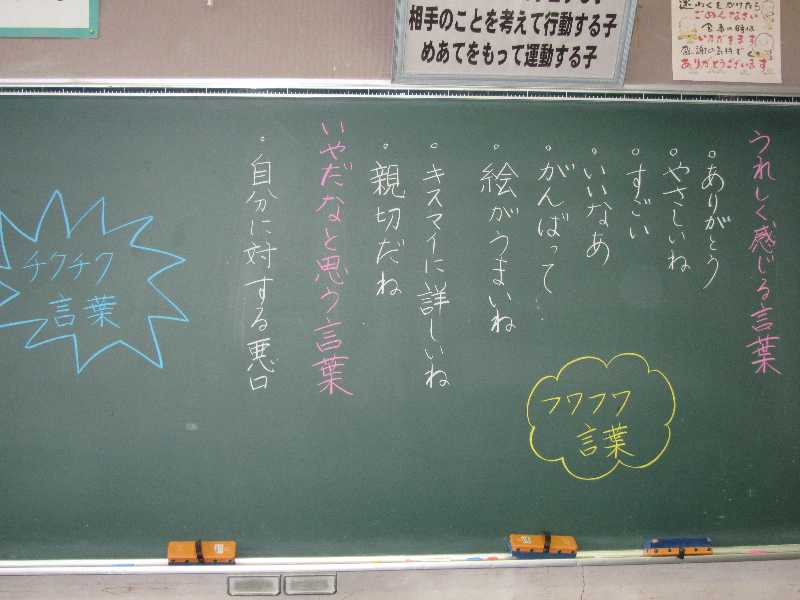 相手のことを考えて行動する子
めあてをもって運動する子
ごめんなさい
食事の時は
いただきます
ありがとうございます
うれしく感じる言葉
。ありがとう
。やさしいね
。すごい
。いいなあ
。がんばって…
。絵がうまいね
。キスマイに詳しいね
。親切だね
フワフワ
言葉
いやだなと思う言葉
・自分に対する悪口
チクチク
言葉